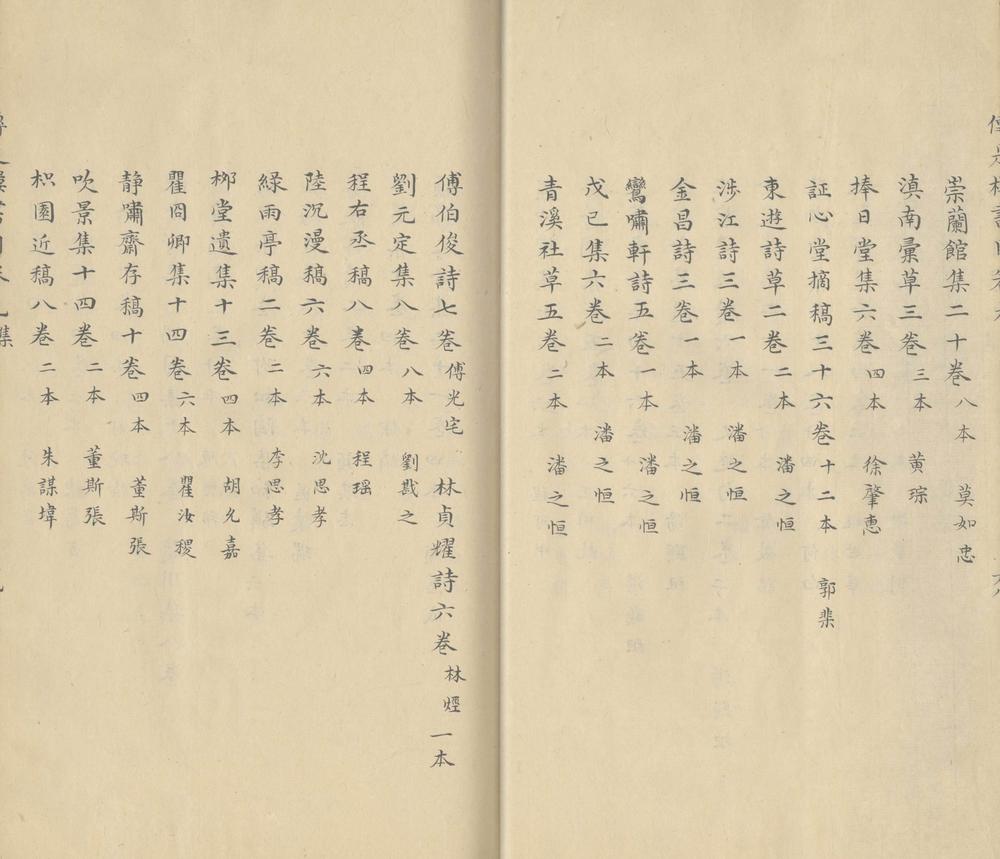 崇蘭館集二十卷 八本 莫如忠
滇南彙草三卷 三本 黄琮
捧日堂集六卷 四本 徐肇惠
証心堂摘稿三十六卷 十二本 郭棐
東遊詩草二卷 二本 潘之恒
涉江詩三卷 一本 潘之恒
金昌詩三卷 一本 潘之恒
鸞嘯軒詩五卷 一本 潘之恒
戊已集六卷 二本 潘之恒
青溪社草五卷 二本 潘之恒
傅伯俊詩七卷 傅光宅 林貞耀詩六卷 林烴 一本
劉元定集八卷 八本 劉戡之
程右丞稿八卷 四本 程瑶
陸沉漫稿六卷 六本 沈思孝
緑雨亭稿二卷 二本 李思孝
栁堂遺集十三卷 四本 胡允嘉
瞿冏卿集十四卷 六本 瞿汝稷
静嘯齋存稿十卷 四本 董斯張
吹景集十四卷 二本 董斯張
枳園近稿八卷 二本 朱謀㙔